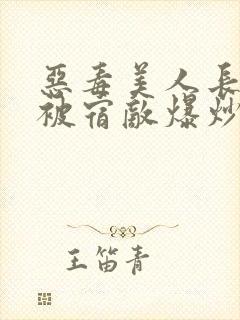 惡毒美人長
被宿敵爆炒
王笛青